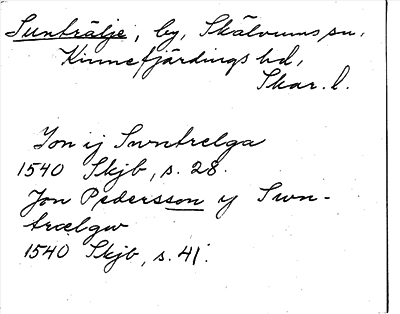 Sunträlje, by, Skälvums sn,
Kinnefjärdings hd,
Skar. l.
Jon ij Swntrelga
1540 Skjb, s. 28.
Jon Pedersson y Swn-
trælgw
1540 Skjb, s. 41.